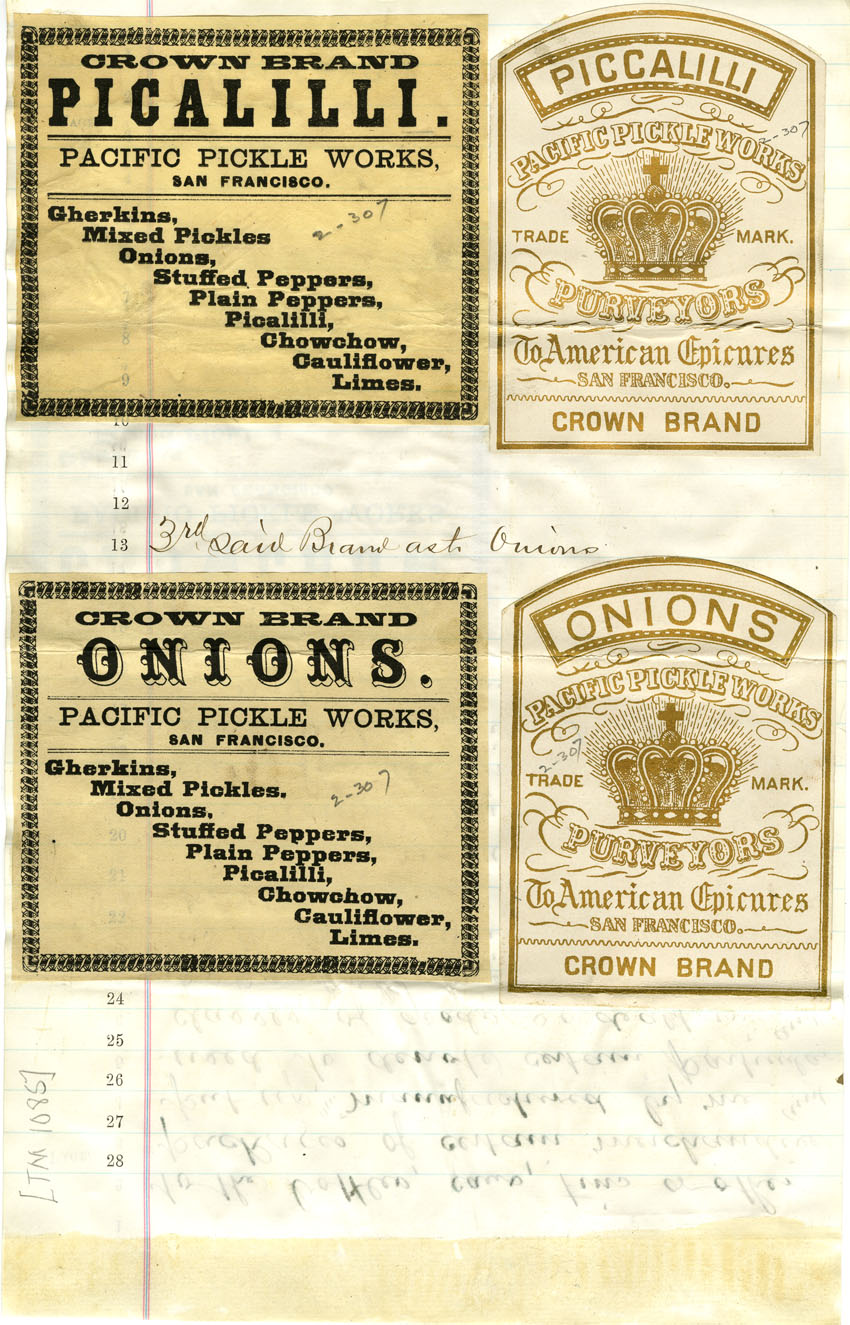 CROWN BRAND
PICALILLI.
PACIFIC PICKLE WORKS,
SAN FRANCISCO.
Gherkins,
Mixed Pickles
Onions,
Stuffed Peppers,
Plain Peppers,
Picalilli,
Chowchow,
Cauliflower,
Limes.
2-307
PICCALILLI
2-307
PACIFIC PICKLE WORKS
TRADE MARK.
PURVEYORS
To American Epicures
SAN FRANCISCO.
CROWN BRAND
7
8
9
10
11
12
13 3rd said Brand as to Onions
CROWN BRAND
ONIONS.
PACIFIC PICKLE WORKS,
SAN FRANCISCO.
Gherkins,
Mixed Pickles.
Onions,
Stuffed Peppers,
Plain Peppers,
Picalilli,
Chowchow,
Cauliflower,
Limes.
2-307
ONIONS
PACIFIC PICKLE WORKS
2-307
TRADE MARK.
PURVEYORS
To American Epicures
SAN FRANCISCO.
CROWN BRAND
20
21
22
24
25
26
27
28
[TM 1085]